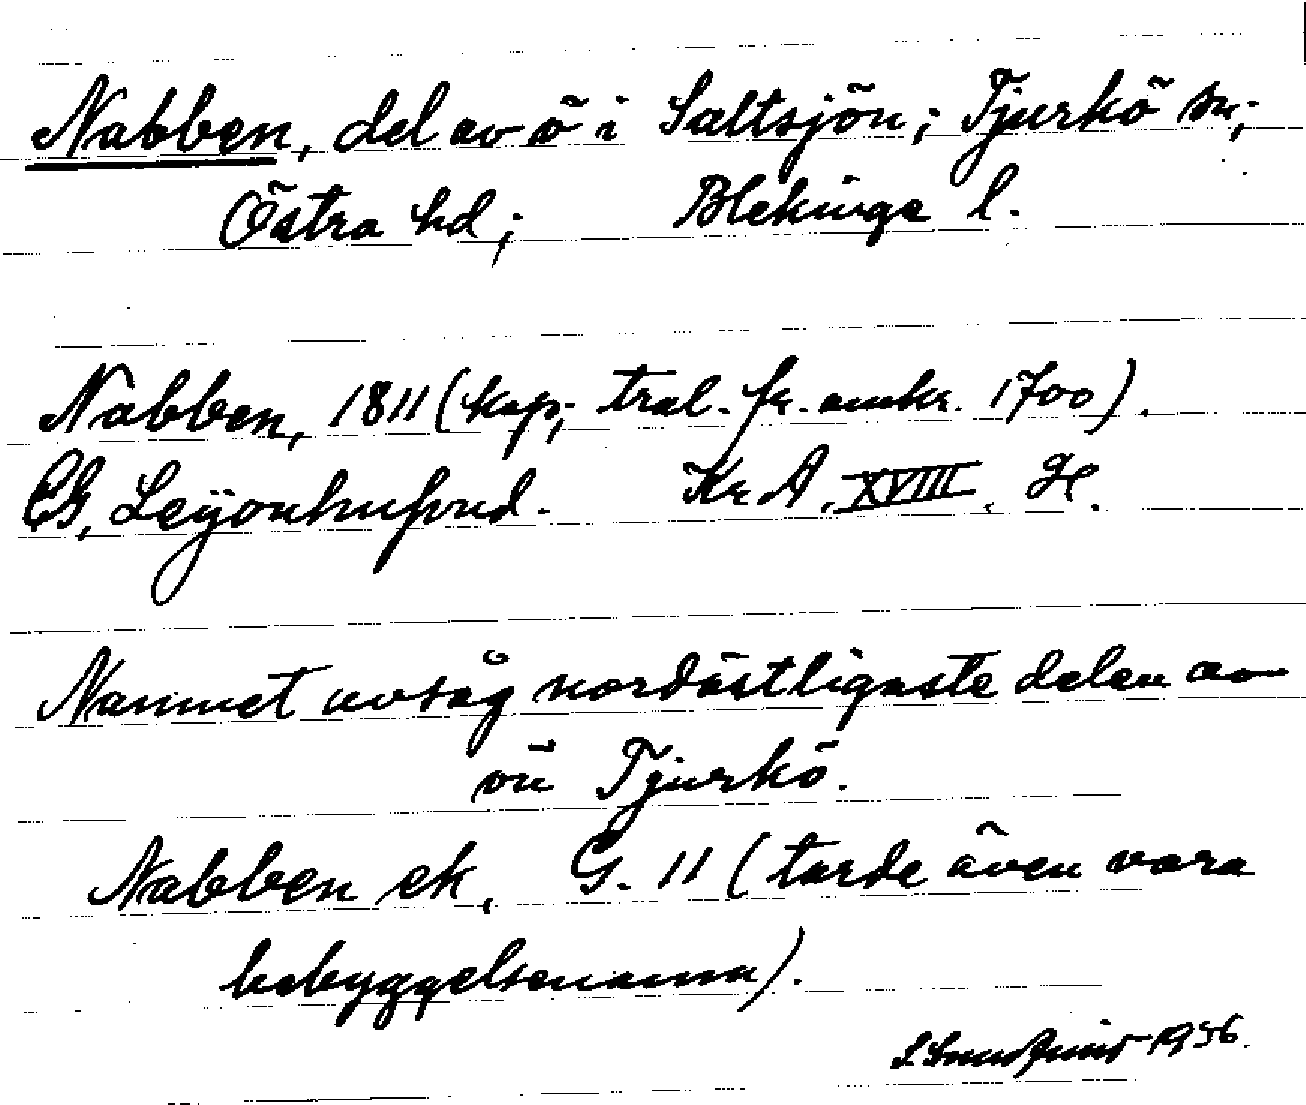 Nabben, del av ö i Saltsjön; Tjurkö sn;
Östra hd; Blekinge l.
Nabben, 1811 (kop, tral. fr. omkr. 1700).
CG, Leÿonhufvud. KrA, XVIII,
Namnet avsåg nordöstligaste delen av
ön Tjurkö.
Nabben ek. G. 11 (torde även vara
bebyggelsenamn).
1956.